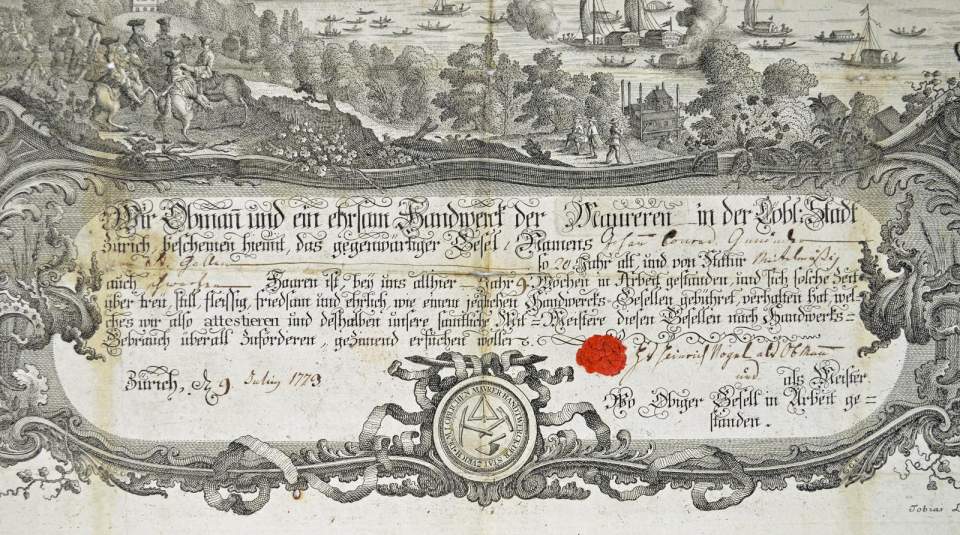 Wir Obman und ein ehrsam Handwerck der Maureren in der Lobl: Stadt
Zürich, bescheinen hiemit, das gegenwärtiger Gesel, Namens Johan Conrad
so 20 Jahr alt, und von Statur Mittelmäßig
auch schwartzen Haaren ist, bey uns allhier Jahr 9 Wochen in Arbeit gestanden, und sich solche Zeit
über treü, still, fleissig, friedsam und ehrlich, wie einem jeglichen Handwercks-Gesellen gebühret, verhalten hat, wel-
ches wir also attestieren und deshalben unsere samtliche Mit-Meistere diesen Gesellen nach Handwercks-
Gebrauch überall zuforderen, geziemend ersuchen wollen.
Heinrich Vogel als Obman
Zürich, d. 9 Julij 1773
und als Meister
Wo Obiger Gesell in Arbeit ge-
standen.
MAURER HANDWERCK
Tobias